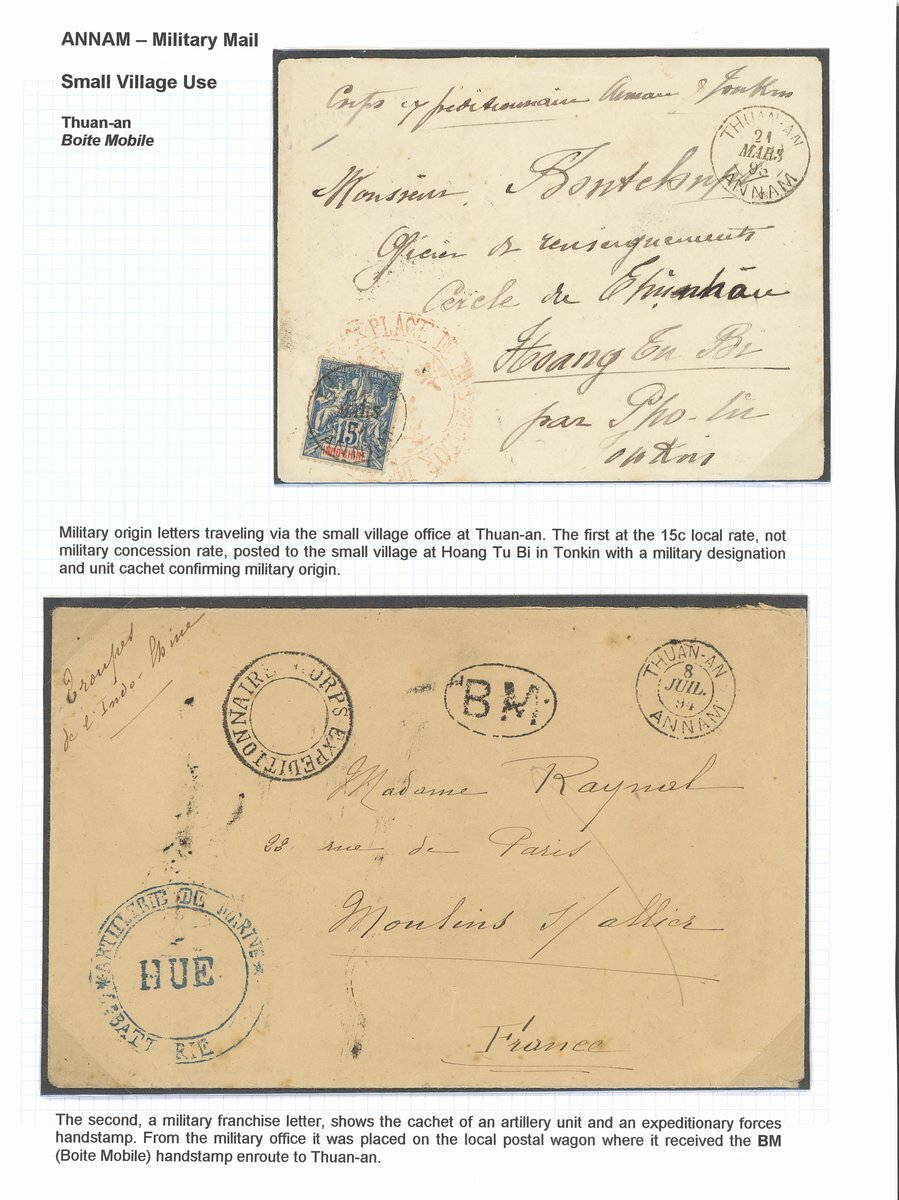 ANNAM – Military Mail
Small Village Use
Thuan-an
Boite Mobile
Corps expéditionnaire Annam & Tonkin
THUAN-AN
21
MARS
95
ANNAM
Monsieur
Officier de renseignements
Cercle de
Hoang Tu Bi
par Pho-lu
Tonkin
PLACE DE
REPUBLIQUE FRANCAISE
MARS
15
INDO-CHINE
Military origin letters traveling via the small village office at Thuan-an. The first at the 15c local rate, not
military concession rate, posted to the small village at Hoang Tu Bi in Tonkin with a military designation
and unit cachet confirming military origin.
Troupes
de l'Indo-Chine
CORPS EXPEDITIONNAIRE
BM
THUAN-AN
8
JUIL.
94
ANNAM
Madame Raynal
22 rue de Paris
Moulins s/ allier
France
*ARTILLERIE DE MARINE*
HUE
BATTERIE
The second, a military franchise letter, shows the cachet of an artillery unit and an expeditionary forces
handstamp. From the military office it was placed on the local postal wagon where it received the BM
(Boite Mobile) handstamp enroute to Thuan-an.